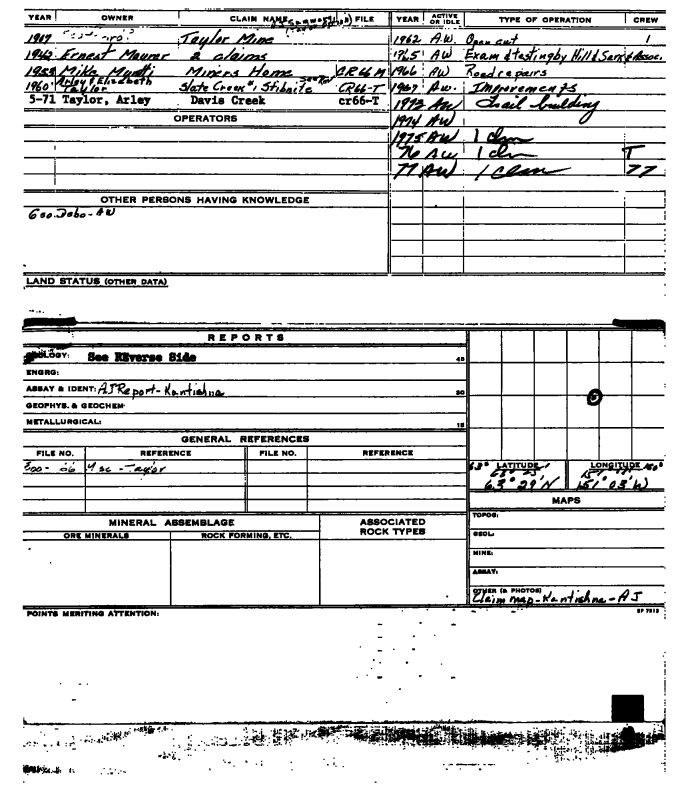 YEAR OWNER CLAIM NAME FILE YEAR ACTIVE OR IDLE TYPE OF OPERATION CREW
Taylor Mine 1962 AW Open cut 1
1942 Ernest Maurer 2 claims 1965 AW Exam & testing by Hill & Assoc.
Mike Miners Home CR66 M 1966 AW Road repairs
1960 Arley & Elizabeth Taylor Slate Creek Stibnite CR66-T 1967 AW. Improvements
5-71 Taylor, Arley Davis Creek cr66-T 1972 AW Trail building
OPERATORS 1974 AW
1975 AW 1 clm
76 AW 1 clm T
77 AW 1 clam 77
OTHER PERSONS HAVING KNOWLEDGE
Geo. Dobo - AW
LAND STATUS (OTHER DATA)
REPORTS
GEOLOGY: See REverse Side 45
ENGRG:
ASSAY & IDENT: AJ Report - Kantishna 30
GEOPHYS. & GEOCHEM
METALLURGICAL: 15
GENERAL REFERENCES
FILE NO. REFERENCE FILE NO. REFERENCE
Taylor
LATITUDE LONGITUDE
63° 29' N 151° 03' W
MAPS
MINERAL ASSEMBLAGE ASSOCIATED ROCK TYPES TOPOG:
ORE MINERALS ROCK FORMING, ETC. GEOL:
MINE:
ASSAY:
OTHER (& PHOTOS)
Claim map - Kantishna - AJ
POINTS MERITING ATTENTION: